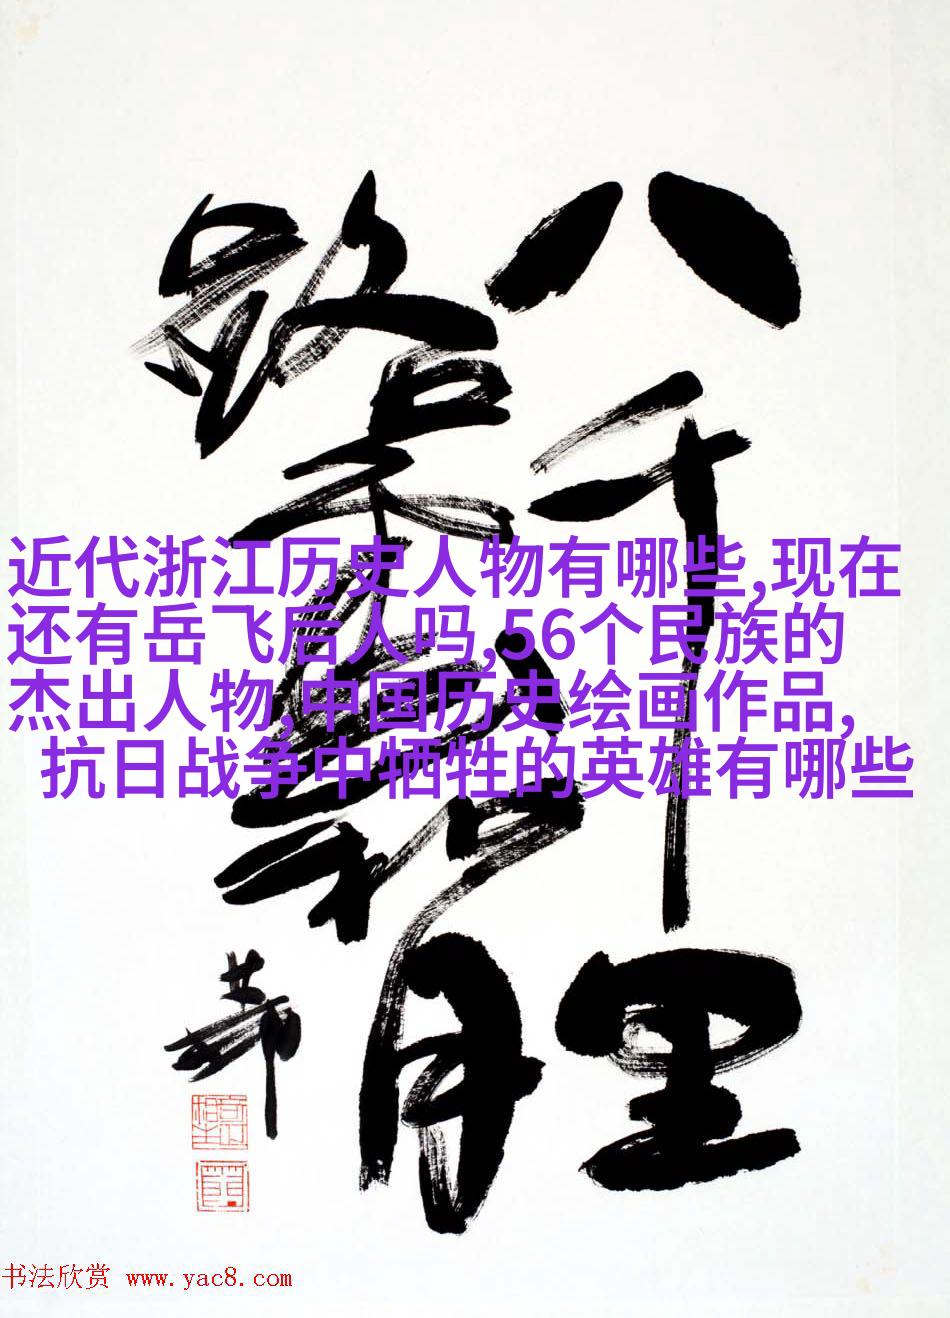 八千里
路云和月
近代浙江历史人物有哪些,现在
还有岳 飞后人吗,56个民族的
杰出人物,中国历史绘画作品,
抗日战争中牺牲的英雄有哪些
书法欣赏 www.yac8.com